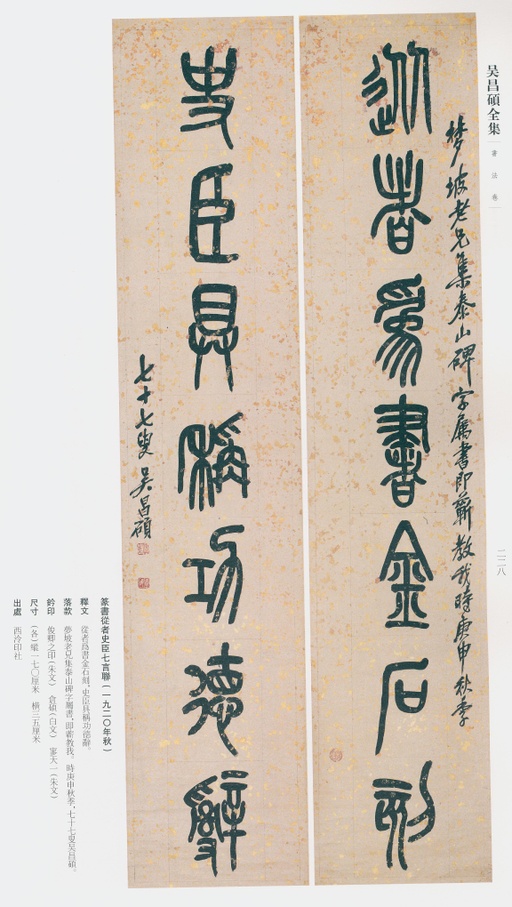 吴昌碩全集 書法卷
二二八
夢坡老兄集泰山碑字属書即蘄教我時庚申秋季
從者爲書金石刻
史臣具稱功德辭
七十七叟吴昌碩
篆書從者史臣七言聯(一九二〇年秋)
釋文 從者爲書金石刻,史臣具稱功德辭。
落款 夢坡老兄集泰山碑字屬書,即蘄教我。時庚申秋季,七十七叟吴昌碩。
鈐印 俊卿之印(朱文) 倉碩(白文) 寥天一(朱文)
尺寸 (各)縱一七〇厘米 橫三五厘米
出處 西泠印社